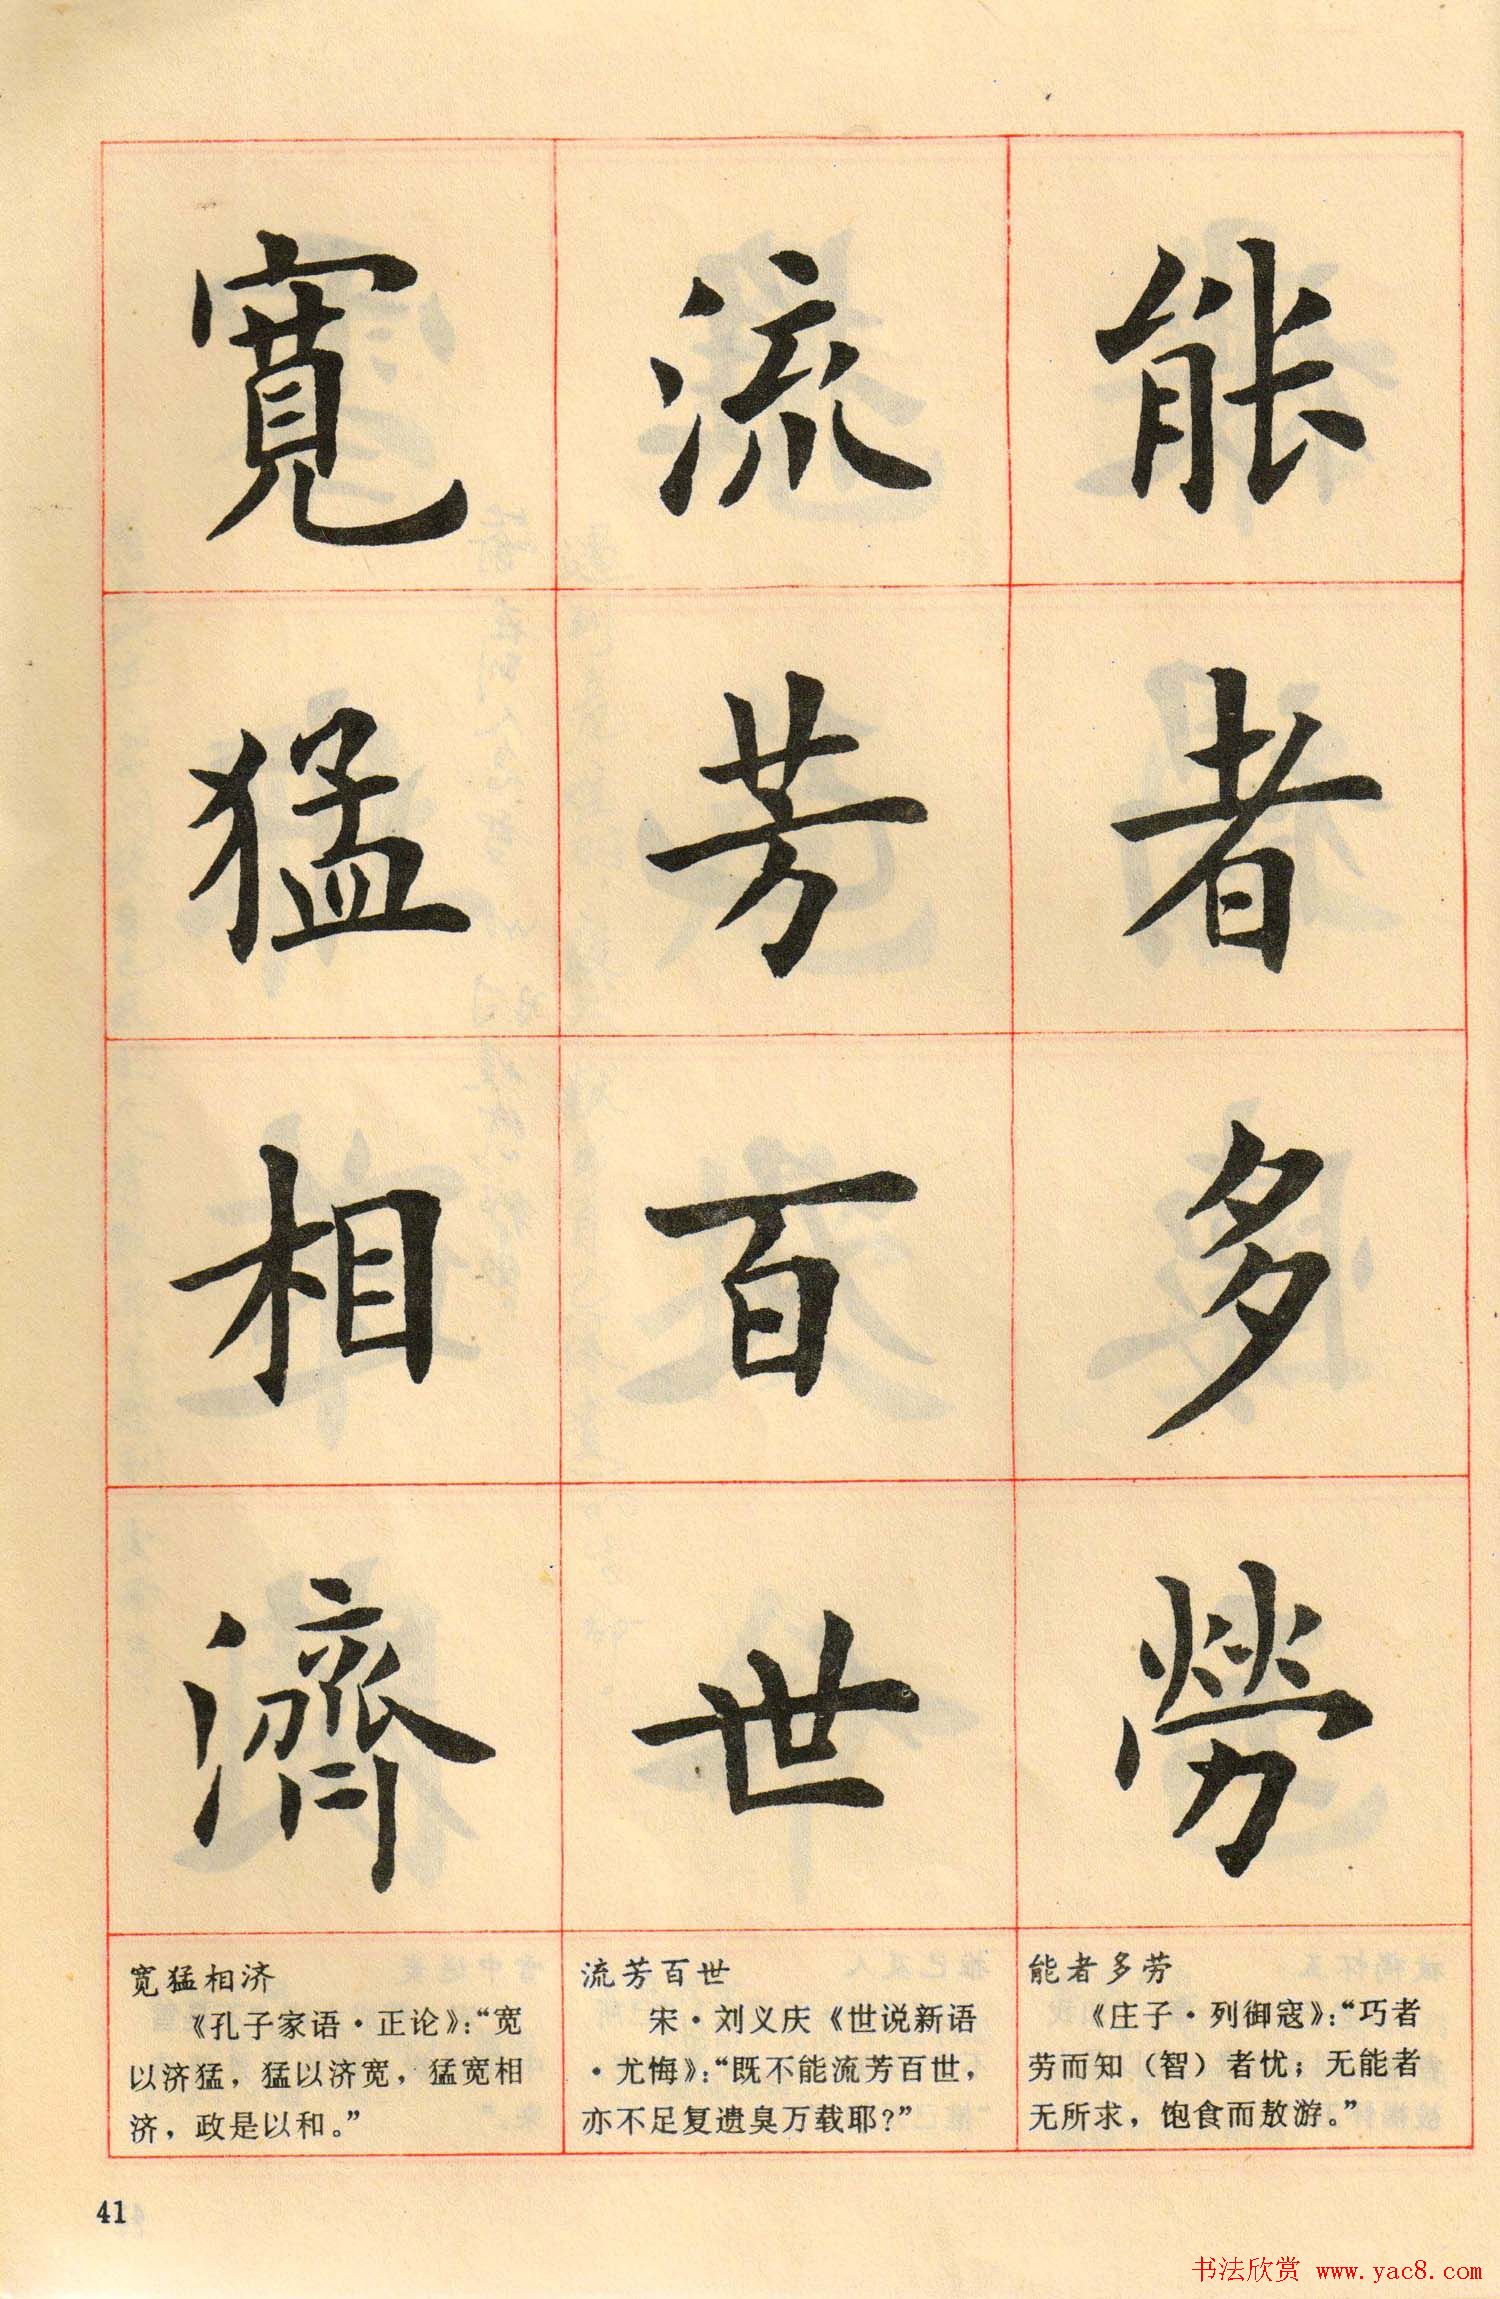 能者多勞
流芳百世
寬猛相濟
宽猛相济
《孔子家语·正论》：“宽
以济猛，猛以济宽，猛宽相
济，政是以和。”
流芳百世
宋·刘义庆《世说新语
·尤悔》：“既不能流芳百世，
亦不足复遗臭万载耶？”
能者多劳
《庄子·列御寇》：“巧者
劳而知（智）者忧；无能者
无所求，饱食而敖游。”
41
书法欣赏 www.yac8.com